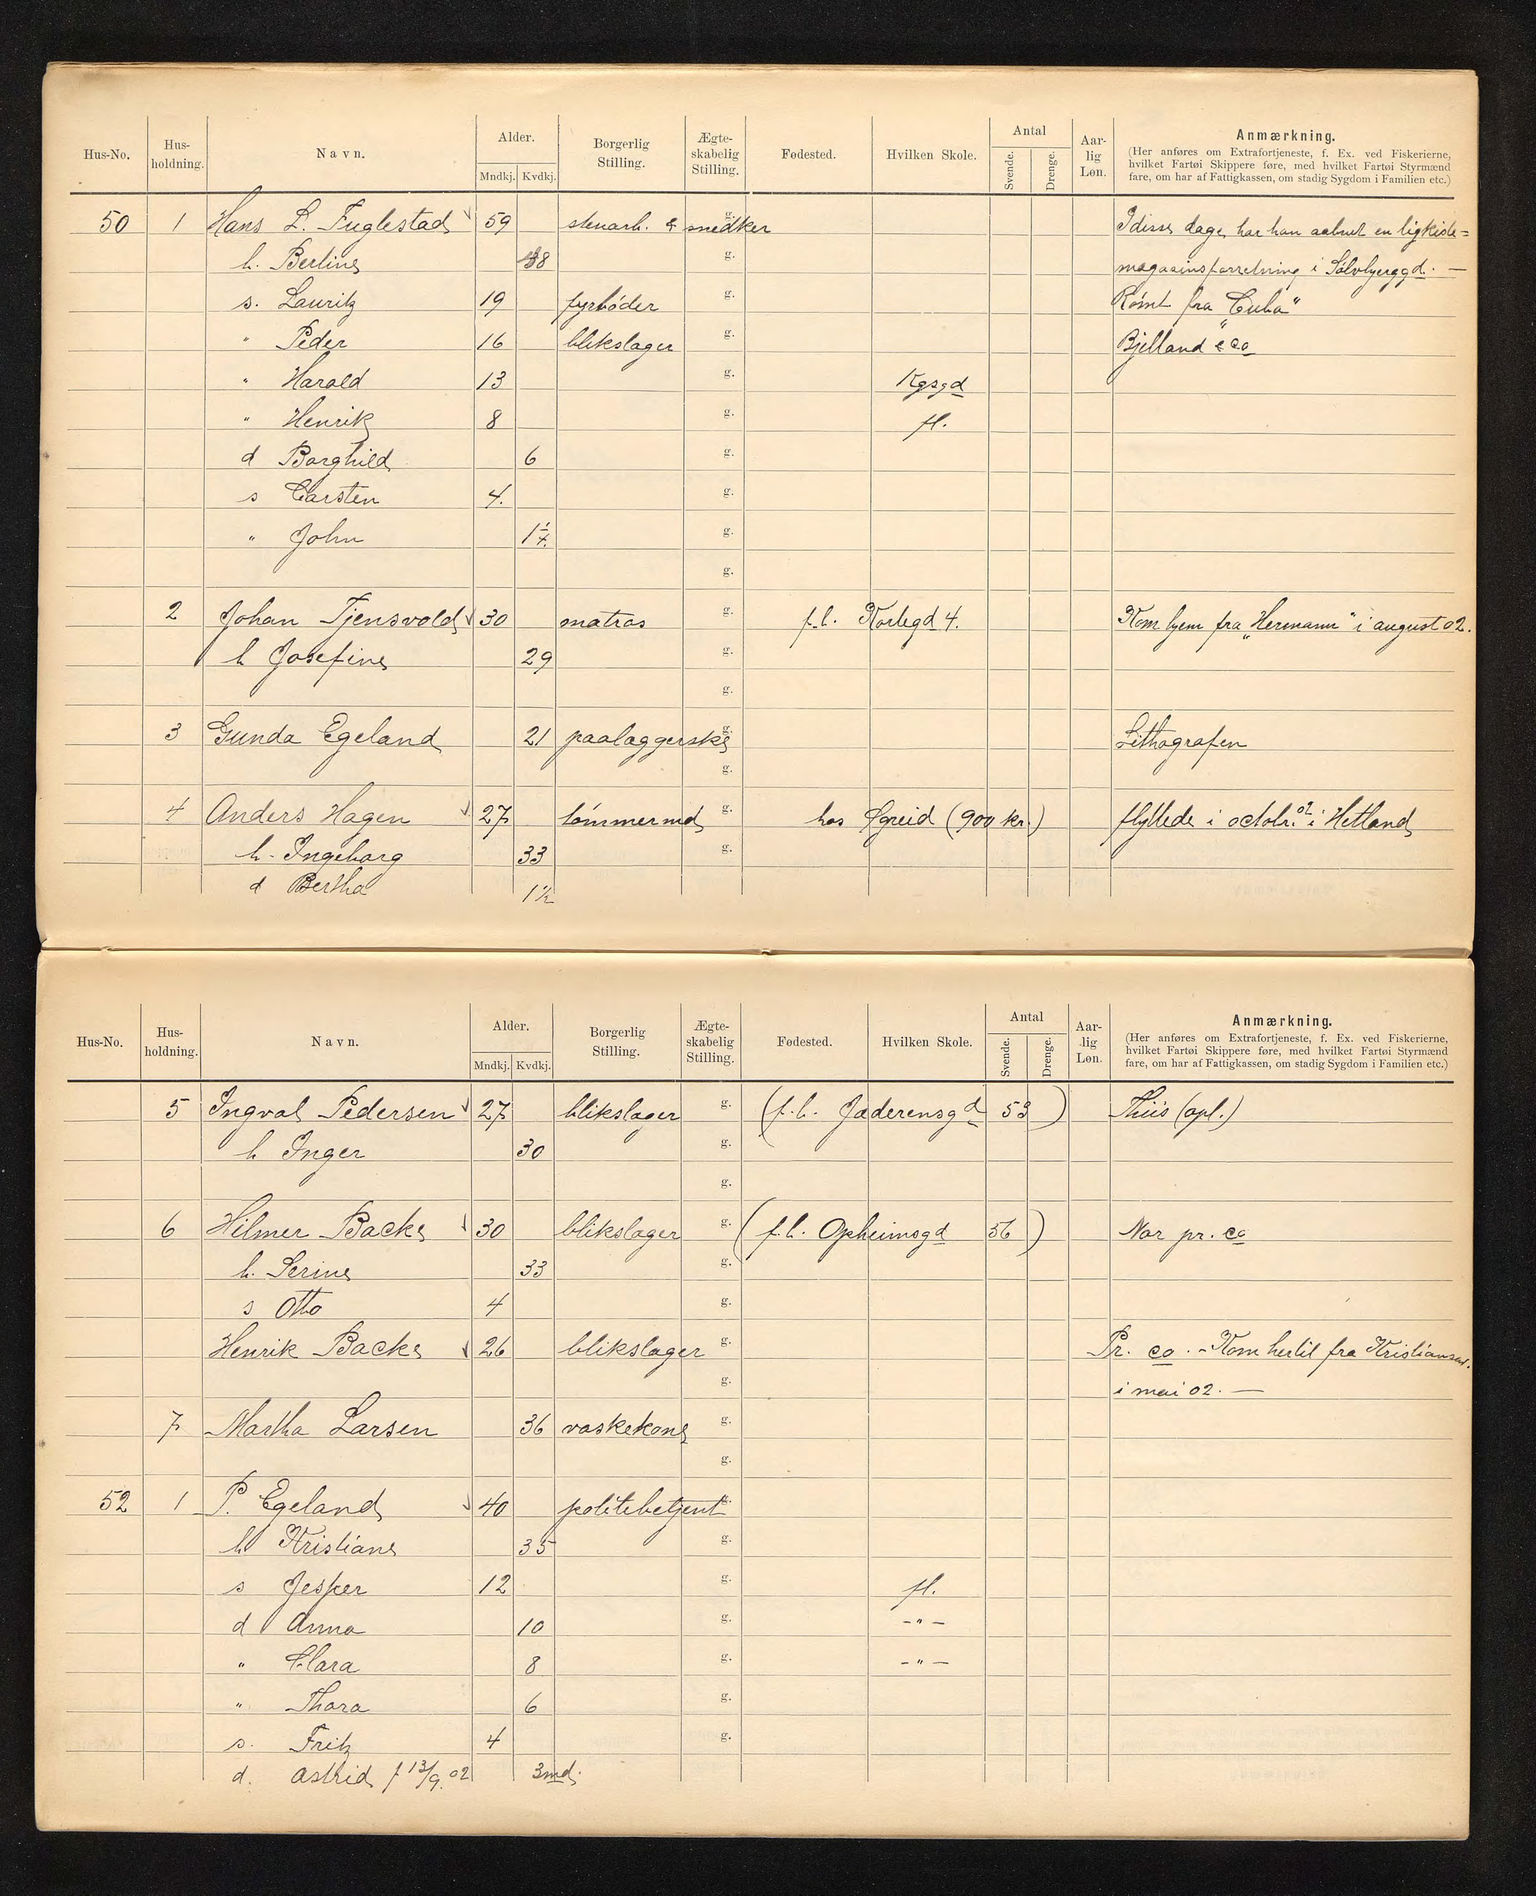 Hus-No. Hus-holdning. Navn. Alder. Mndkj. Kvdkj. Borgerlig Stilling. Ægte-skabelig Stilling. Fødested. Hvilken Skole. Antal Svende. Drenge. Aar-lig Løn. Anmærkning.
(Her anføres om Extrafortjeneste, f. Ex. ved Fiskerierne,
hvilket Fartøi Skippere føre, med hvilket Fartøi Styrmænd
fare, om har af Fattigkassen, om stadig Sygdom i Familien etc.)
50 1 Hans L. Fuglestad 59 stenarb. & snedker g. I disse dage har han aabnet en ligkiste=
h. Berline 38 g. magasinsforretning i Sølvbjerggd. —
s. Lauritz 19 fyrbøder g. Rømt fra "Cuba"
" Peder 16 blikslager g. Bjelland & co
" Harald 13 g. Kgsgd
" Henrik 8 g. fl.
d Borghild 6 g.
s Carsten 4. g.
" John g.
g.
2 Johan Tjensvold 30 matros g. f.b. Karlegd 4. Kom hjem fra "Hermann" i august 02.
h Josefine 29 g.
g.
3 Gunda Egeland 21 paalæggerske g. Lithografen
g.
4 Anders Hagen 27 tømmermd g. hos Øgreid (900 kr.) flyttede i octobr. 02 i Hetland
h. Ingeborg 33 g.
d Bertha 1½
Hus-No. Hus-holdning. Navn. Alder. Mndkj. Kvdkj. Borgerlig Stilling. Ægte-skabelig Stilling. Fødested. Hvilken Skole. Antal Svende. Drenge. Aar-lig Løn. Anmærkning.
(Her anføres om Extrafortjeneste, f. Ex. ved Fiskerierne,
hvilket Fartøi Skippere føre, med hvilket Fartøi Styrmænd
fare, om har af Fattigkassen, om stadig Sygdom i Familien etc.)
5 Ingval Pedersen 27 blikslager g. (f.b. Jæderensgd 53) Thiis (opl.)
h Inger 30 g.
g.
6 Hilmer Backe 30 blikslager g. (f.b. Opheimsgd 56) Nor pr. co
h. Serine 33 g.
s Otto 4 g.
Henrik Backe 26 blikslager g. Pr. co. - Kom hertil fra Kristiansd.
g. i mai 02. —
7 Martha Larsen 36 vaskekone g.
g.
52 1 P. Egeland 40 politibetjent g.
h Kristiane 35 g.
s Jesper 12 g. fl.
d Anna 10 g. -"-
" Clara 8 g. -"-
" Thora 6 g.
s. Fritz 4 g.
d. Astrid f 13/9. 02 3 md.